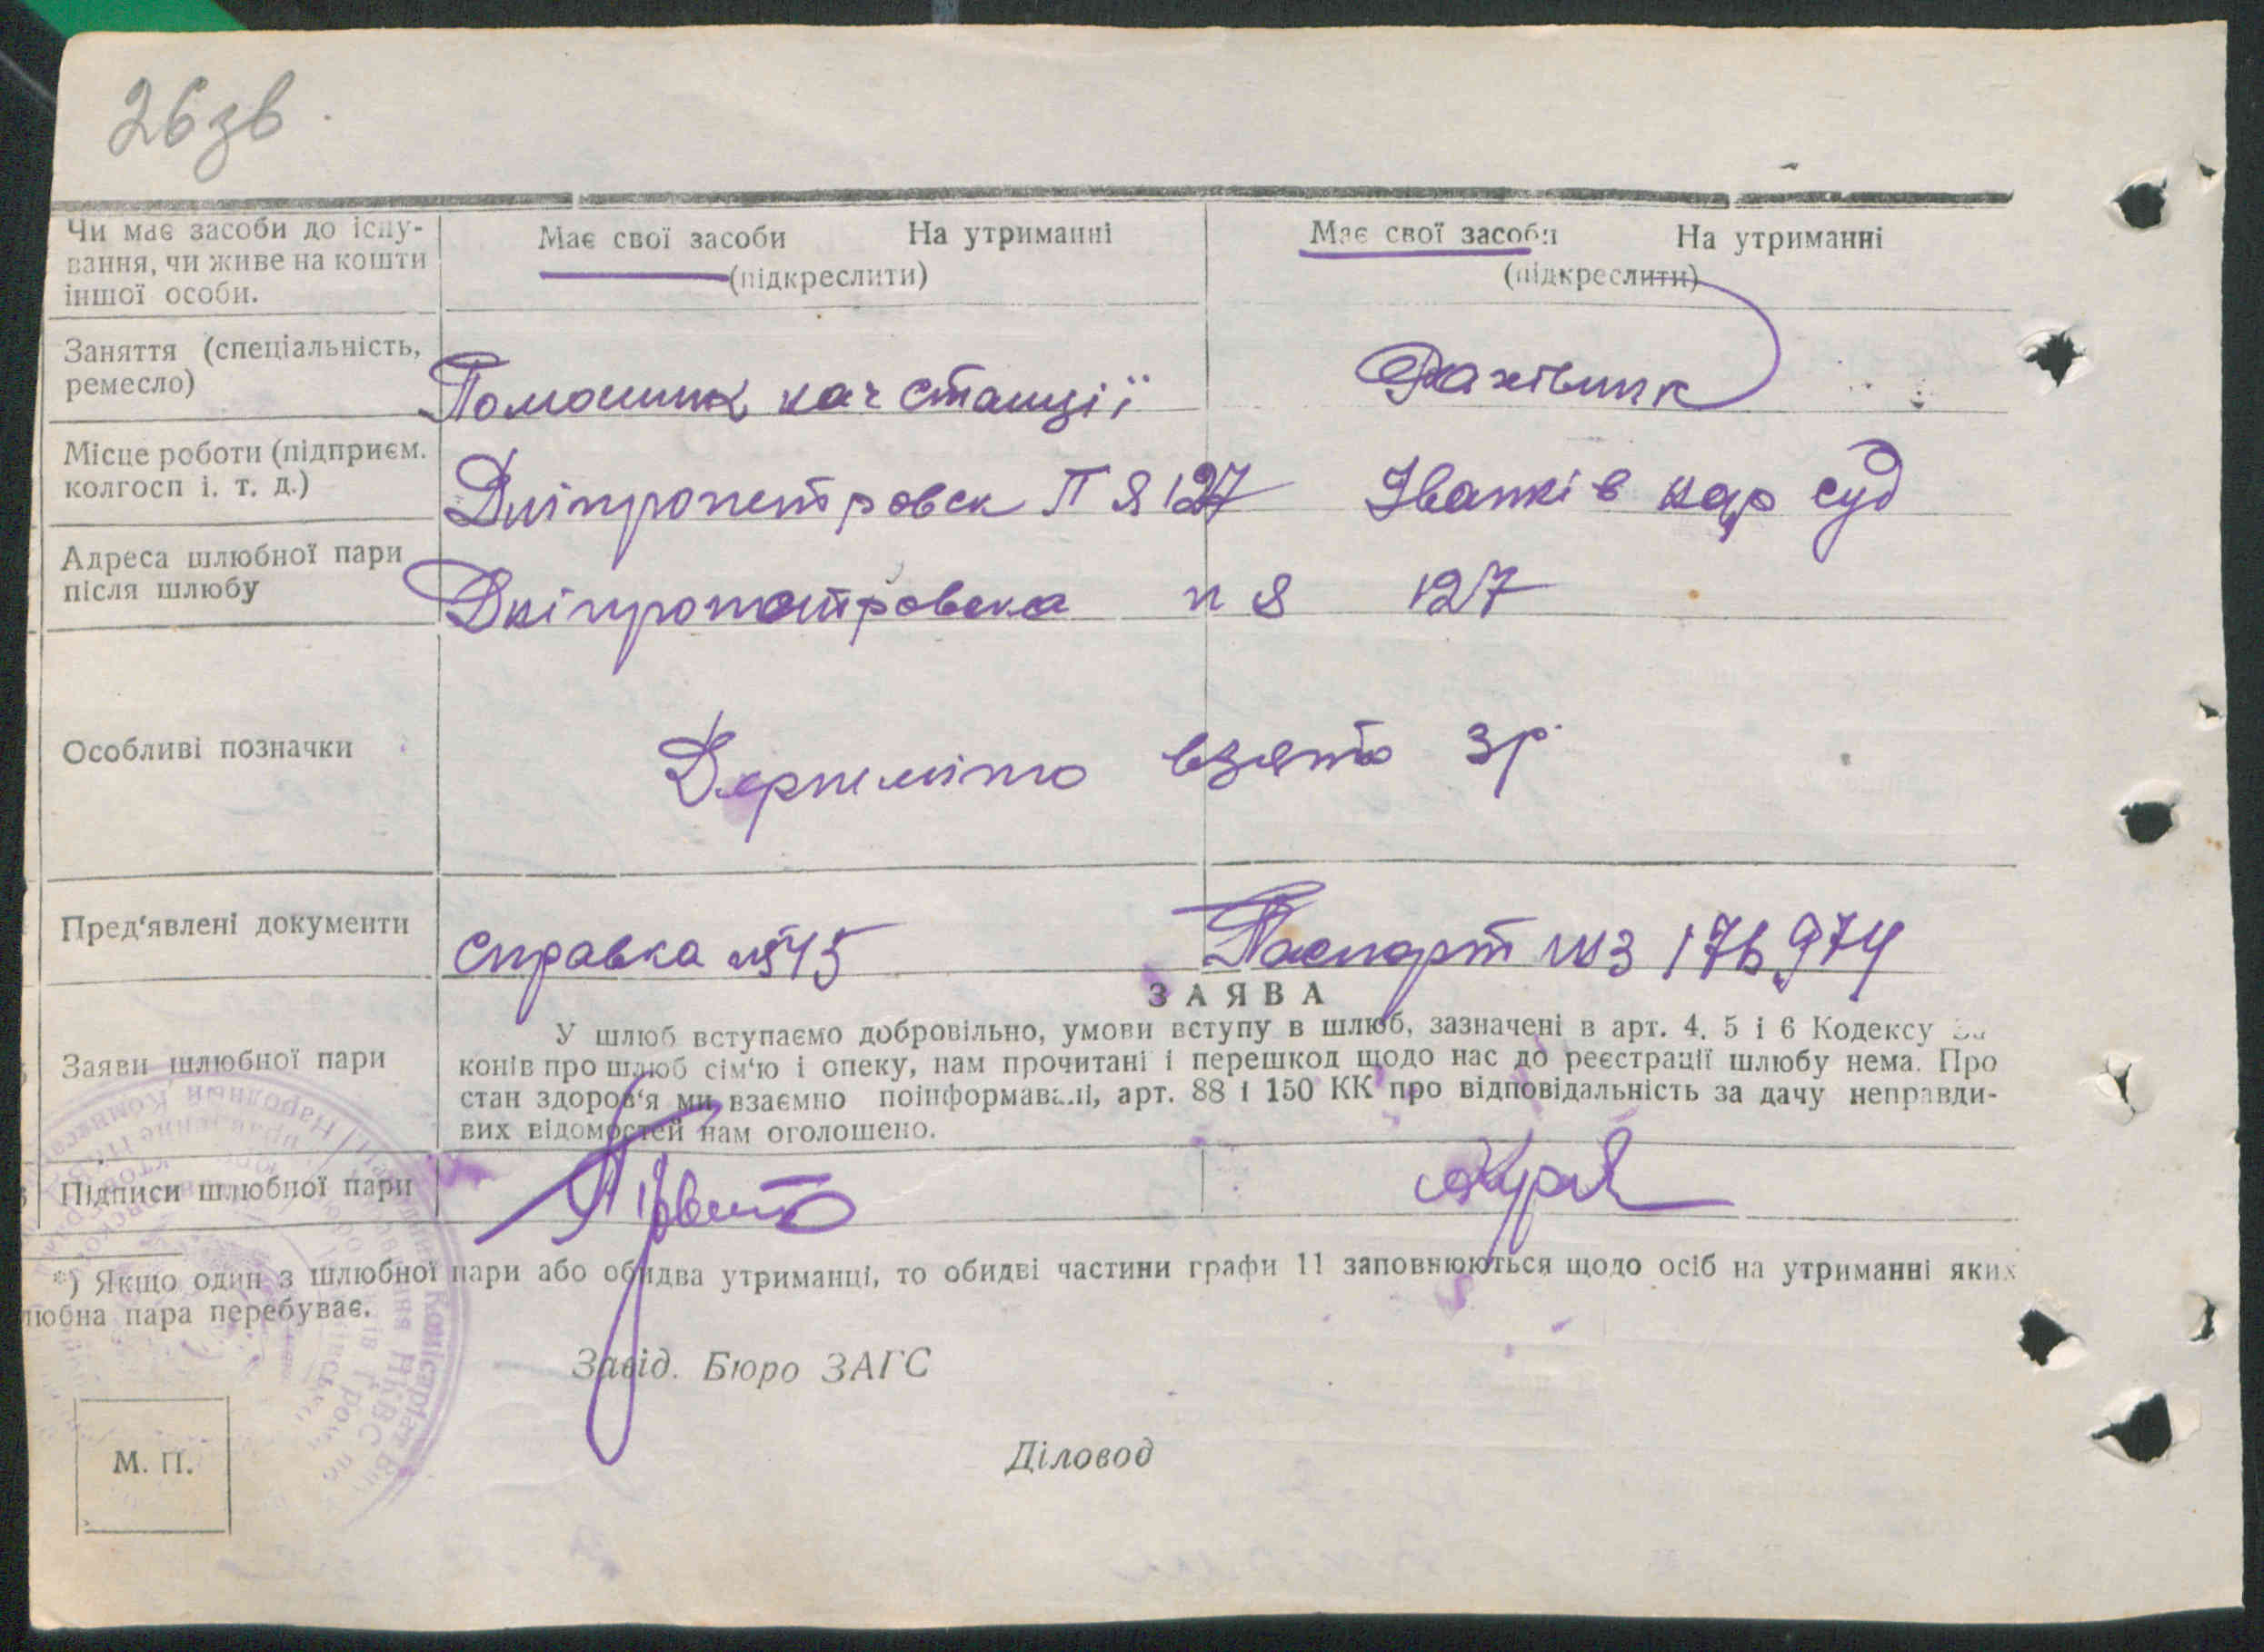 26зв.
Чи має засоби до існу-
вання, чи живе на кошти
іншої особи.
Має свої засоби На утриманні
(підкреслити)
Має свої засоби На утриманні
(підкреслити)
Заняття (спеціальність,
ремесло)
Помошник нач станції
Рахівник
Місце роботи (підприєм.
колгосп і. т. д.)
Дніпропетровск П Я 127
Іванків нар суд
Адреса шлюбної пари
після шлюбу
Дніпропетровска п я 127
Особливі позначки
Держмито взято 3 р.
Пред'явлені документи
Справка №45
Паспорт 176974
ЗАЯВА
Заяви шлюбної пари
У шлюб вступаємо добровільно, умови вступу в шлюб, зазначені в арт. 4, 5 і 6 Кодексу За
конів про шлюб сім'ю і опеку, нам прочитані і перешкод щодо нас до реєстрації шлюбу нема. Про
стан здоров'я ми взаємно поінформавалі, арт. 88 і 150 КК про відповідальність за дачу неправди-
вих відомостей нам оголошено.
Підписи шлюбної пари
*) Якщо один з шлюбної пари або обидва утриманці, то обидві частини графи 11 заповнюються щодо осіб на утриманні яких
любна пара перебуває.
Завід. Бюро ЗАГС
Діловод
М. П.